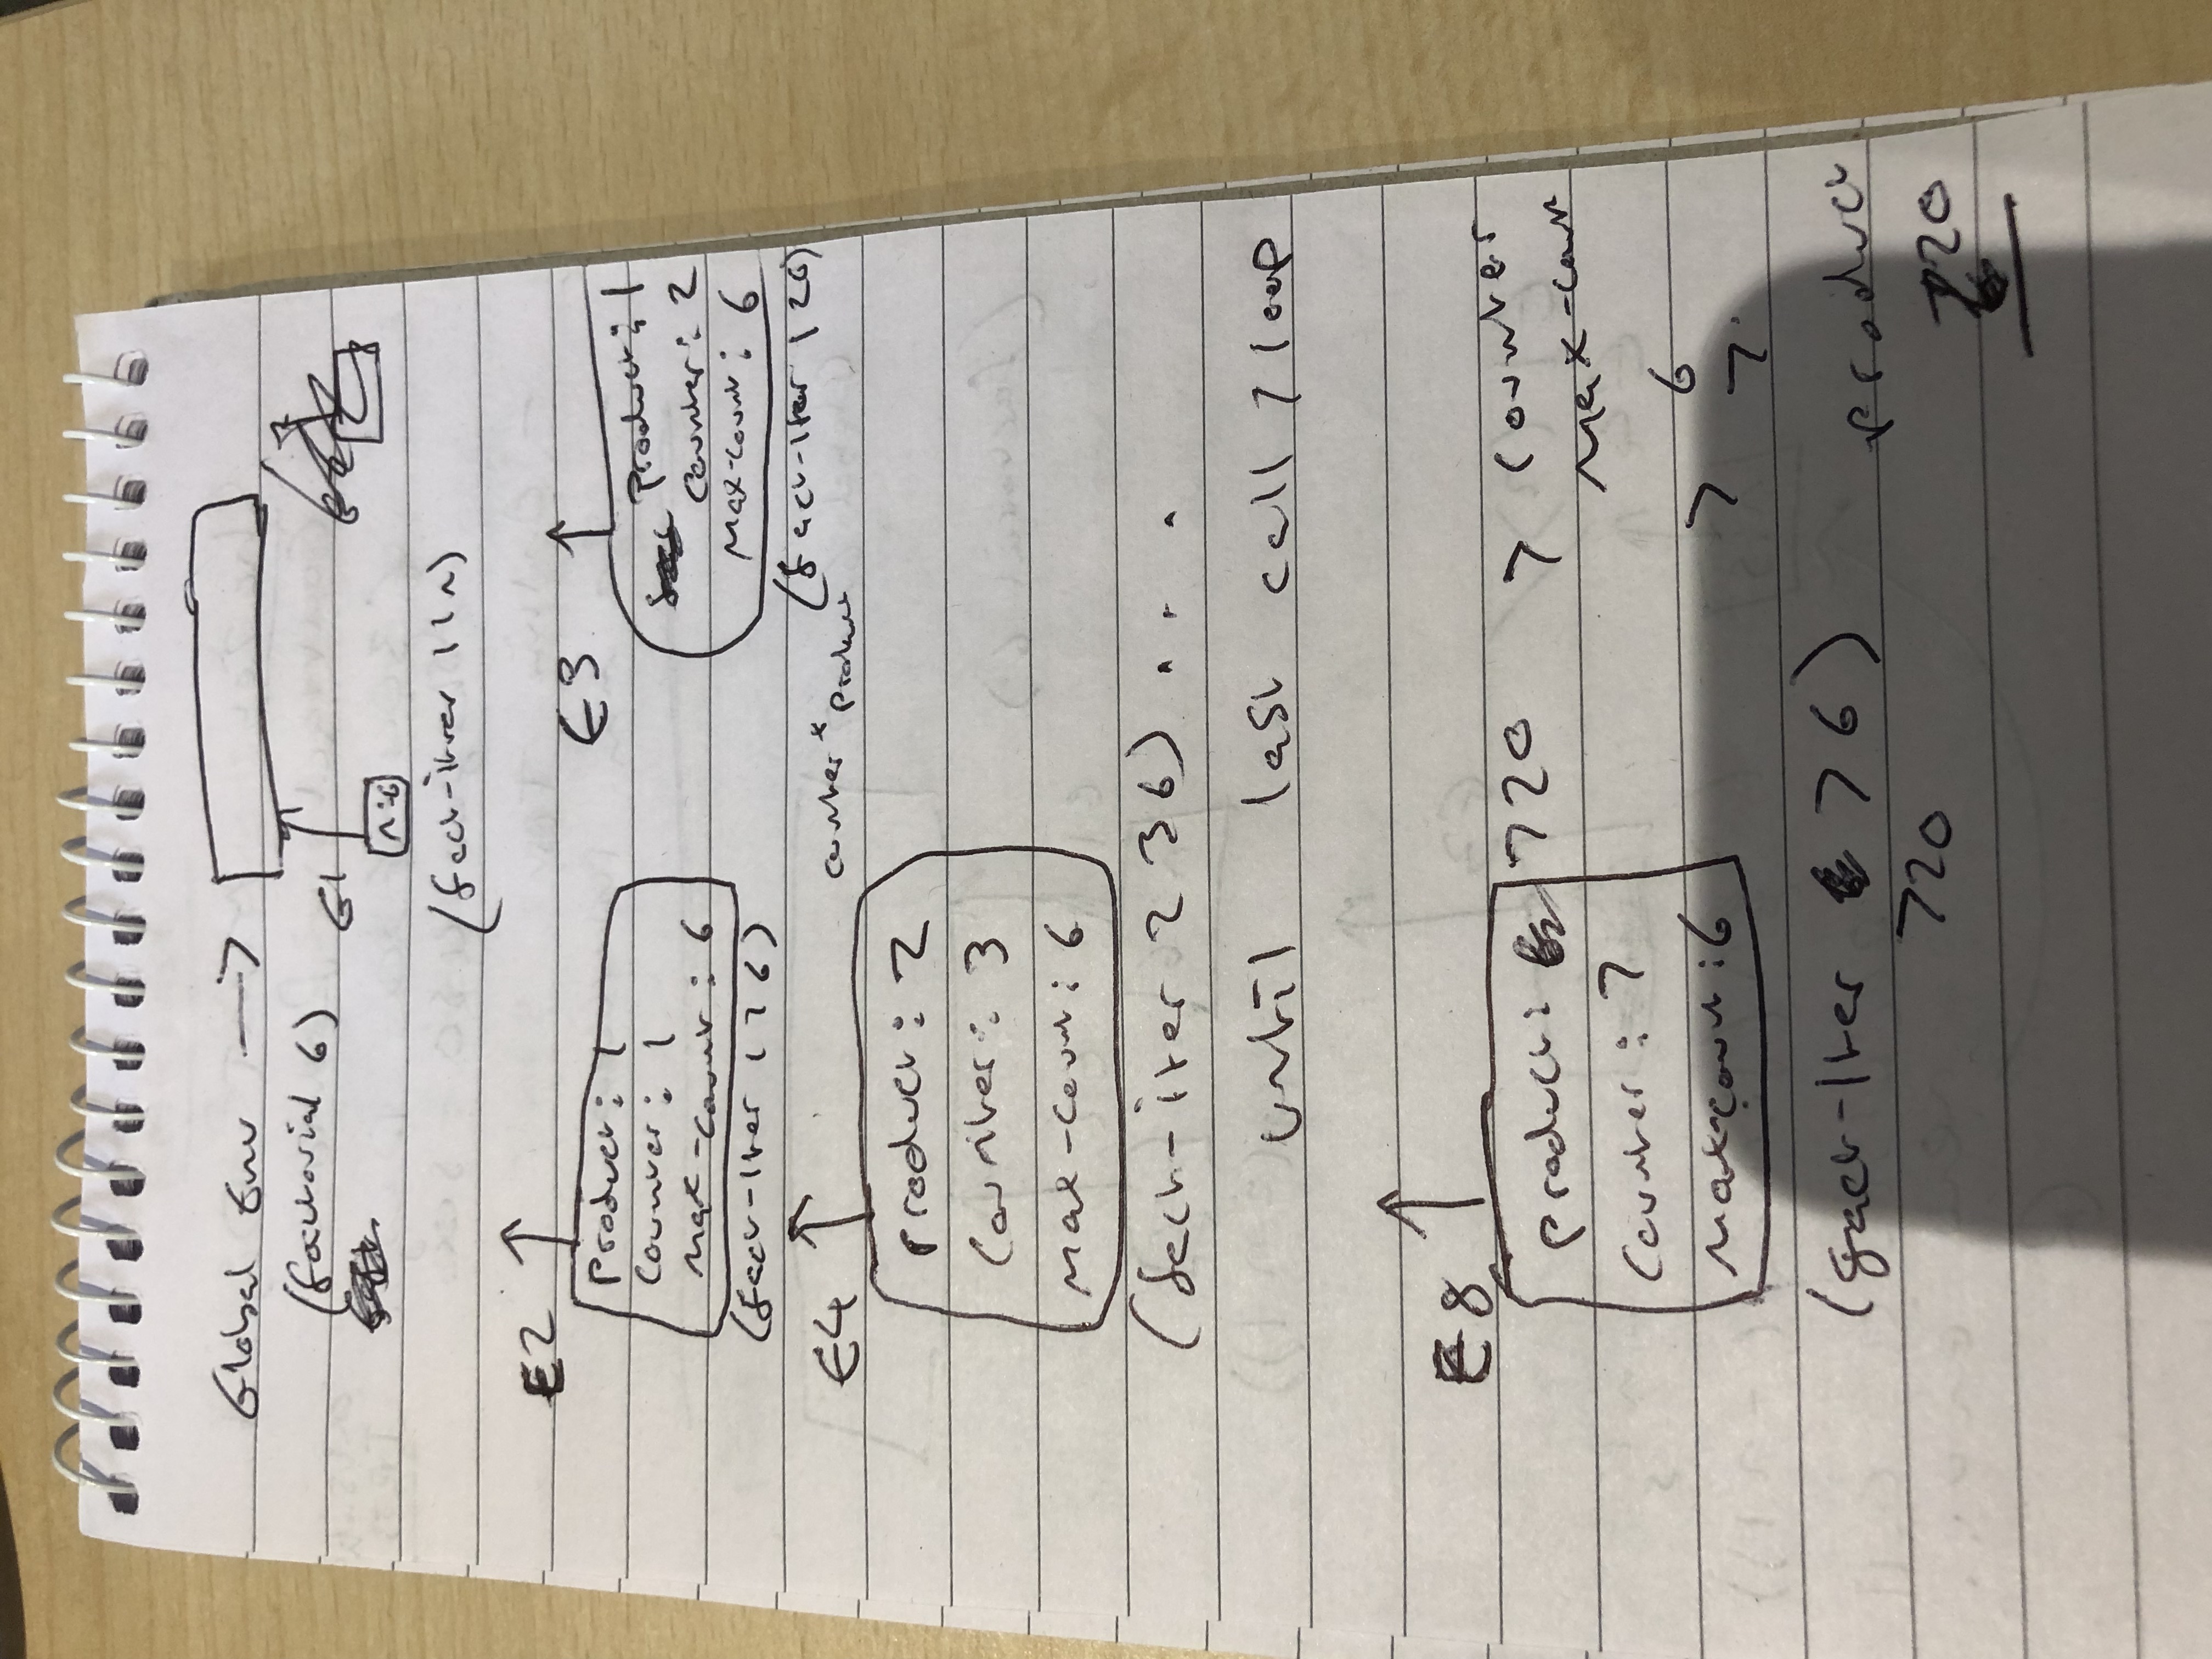 Global Env →
(factorial 6)
E1
n:6
(fact-iter 1 1 n)
E2
product: 1
counter: 1
max-count: 6
(fact-iter 1 1 6)
E3
product: 1
counter: 2
max-count: 6
(fact-iter 1 2 6)
E4
counter * product
product: 2
counter: 3
max-count: 6
(fact-iter 2 3 6) . . .
until last call / loop
E8
product: 720
counter: 7
max-count: 6
(fact-iter 7 6)
720
> counter
max-count
> 6
7
product
720